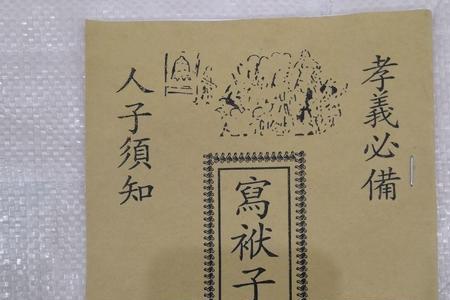 孝義必備
寫袱子
人子須知